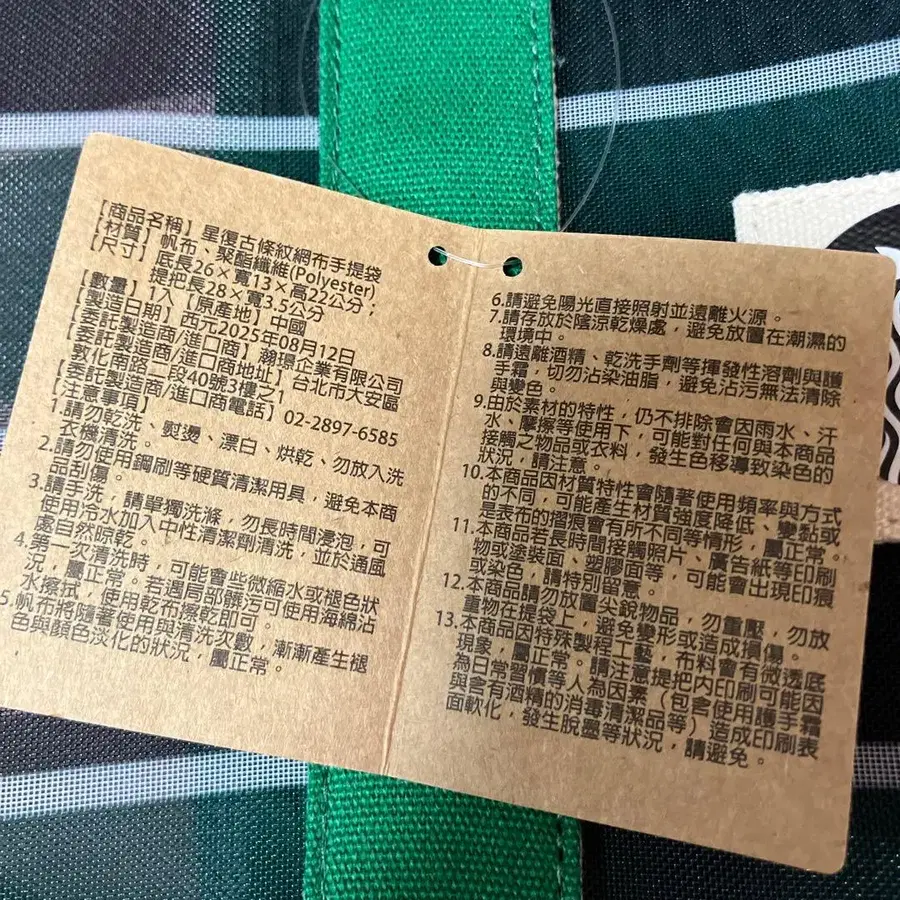 【商品名稱】星復古條紋網布手提袋
【材質】帆布、聚酯纖維(Polyester)
【尺寸】底長26×寬13×高22公分；
提把長28×寬3.5公分
【數量】1入【原產地】中國
【製造日期】西元2025年08月12日
【委託製造商/進口商】瀚璟企業有限公司
【委託製造商/進口商地址】台北市大安區
敦化南路二段40號3樓之1
【委託製造商/進口商電話】02-2897-6585
【注意事項】
1.請勿乾洗、熨燙、漂白、烘乾、勿放入洗
衣機清洗。
2.請勿使用鋼刷等硬質清潔用具，避免本商
品刮傷。
3.請手洗，請單獨洗滌，勿長時間浸泡，可
使用冷水加入中性清潔劑清洗，並於通風
處自然晾乾。
4.第一次清洗時，可能會些微縮水或褪色狀
況，屬正常。若遇局部髒污可使用海綿沾
水擦拭，使用乾布擦乾即可。
5.帆布將隨著使用與清洗次數，漸漸產生褪
色與顏色淡化的狀況，屬正常。
6.請避免陽光直接照射並遠離火源。
7.請存放於陰涼乾燥處，避免放置在潮濕的
環境中。
8.請遠離酒精、乾洗手劑等揮發性溶劑與護
手霜，切勿沾染油脂，避免沾污無法清除
與變色。
9.由於素材的特性，仍不排除會因雨水、汗
水、摩擦等使用下，可能對任何與本商品
接觸之物品或衣料，發生色移導致染色的
狀況，請注意。
10.本商品因材質特性會隨著使用頻率與方式
的不同，可能產生材質強度降低、變黏或
是表布的摺痕會有所不同等情形，屬正常。
11.本商品若長時間接觸照片、廣告紙等印刷
物或塗裝面、塑膠面等，可能會出現印痕
或染色，請特別留意。
12.本商品請勿放置尖銳物品，勿重壓，勿放
重物在提袋上，避免變形或造成損傷。
13.本商品因特殊製程工藝，布料會有微透底
現象，屬正常。請注意提把內印刷可能因
為日常習慣等人為因素（包含使用護手霜
與含有酒精的消毒清潔品等）造成印刷表
面軟化，發生脫墨等狀況，請避免。